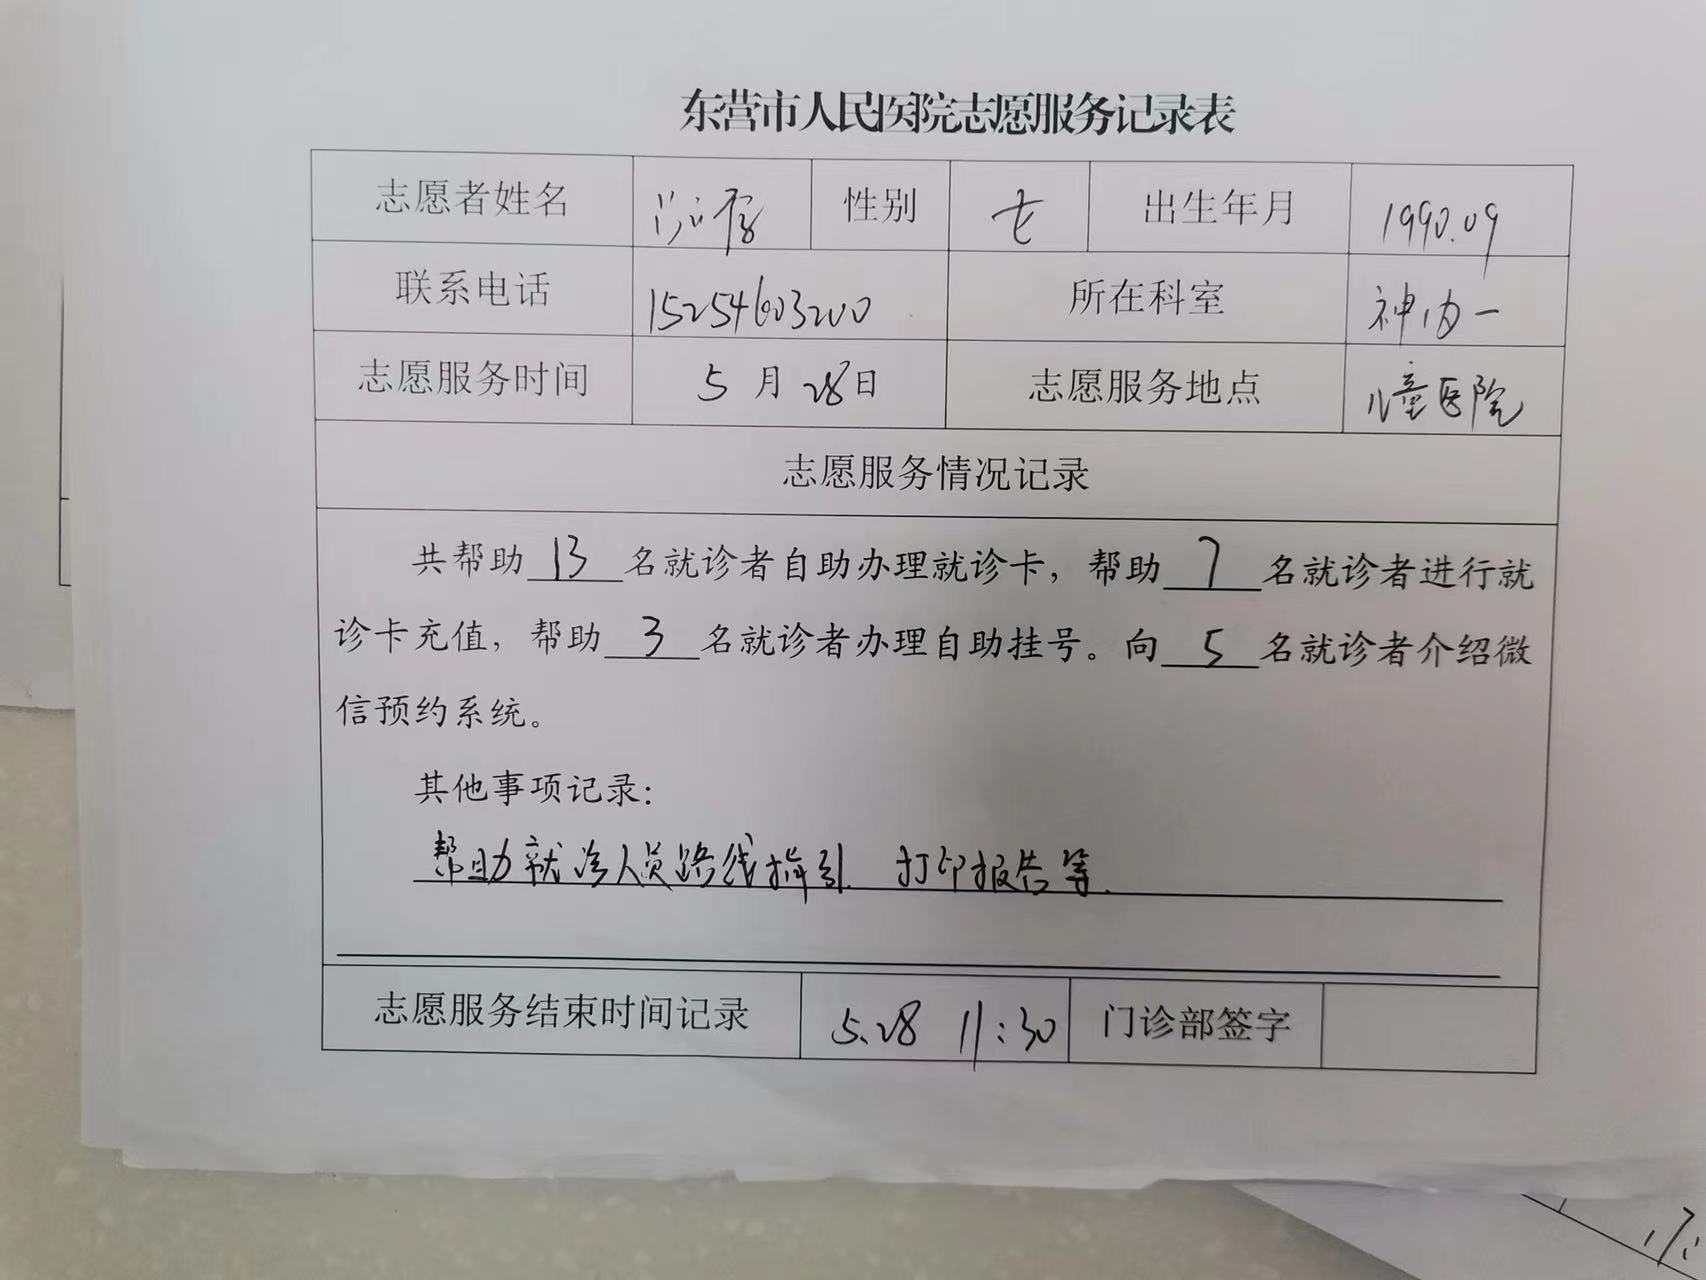 东营市人民医院志愿服务记录表
志愿者姓名 性别 女 出生年月 1990.09
联系电话 15254603200 所在科室 神内一
志愿服务时间 5月28日 志愿服务地点 儿童医院
志愿服务情况记录
共帮助 13 名就诊者自助办理就诊卡，帮助 7 名就诊者进行就
诊卡充值，帮助 3 名就诊者办理自助挂号。向 5 名就诊者介绍微
信预约系统。
其他事项记录：
帮助就诊人员路线指引、打印报告等.
志愿服务结束时间记录 5.28 11:30 门诊部签字